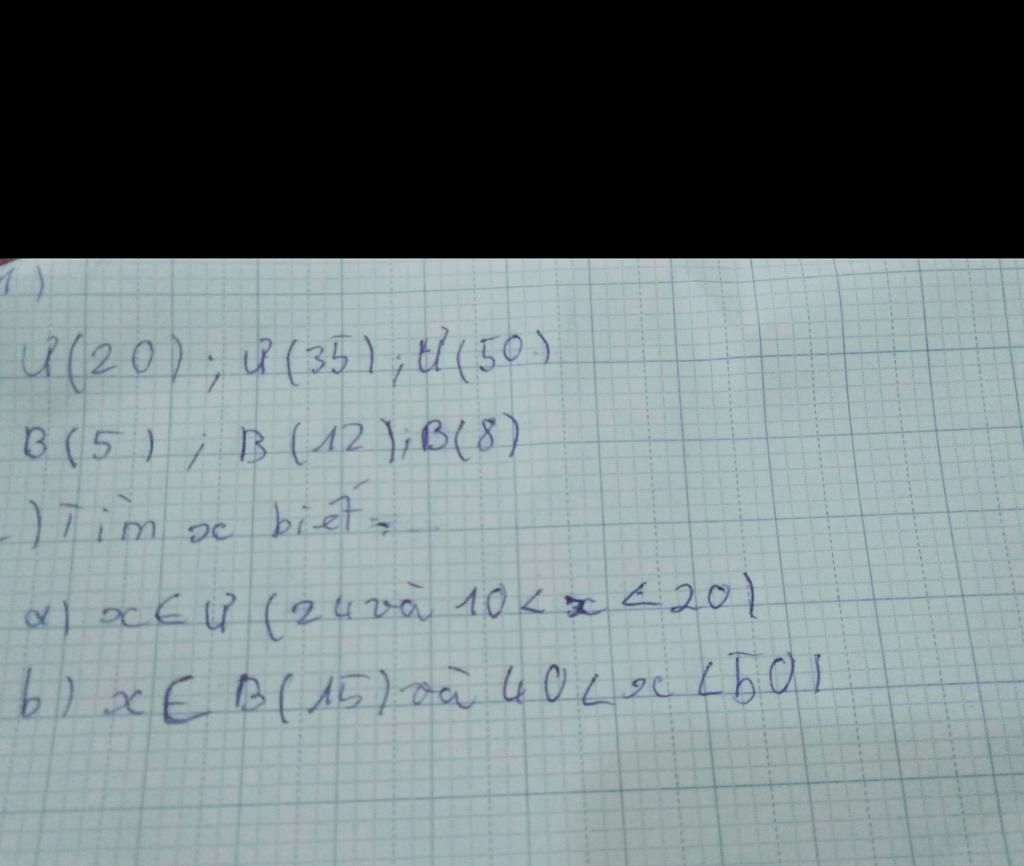 1)
Ư(20) ; Ư(35) ; Ư(50)
B(5) ; B(12) ; B(8)
) Tìm x biết:
a) x ∈ Ư (24 và 10 < x < 20)
b) x ∈ B(15) và 40 < x < 50)